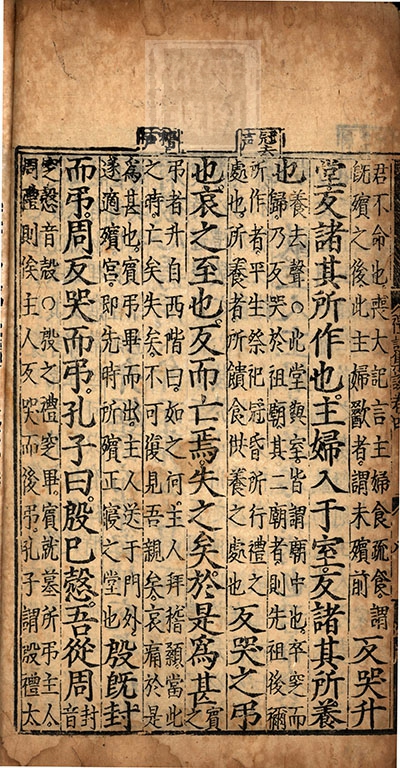 君不命也喪大記言主婦食疏食謂
旣殯之後此主婦歠者謂未殯前
反哭升
堂反諸其所作也主婦入于室反諸其所養
也
養去聲○此堂與室皆謂廟中也卒窆而
歸乃反哭於祖廟其二廟者則先祖後禰
所作者平生祭祀冠昏所行禮之
處也所養者所饋食供養之處也
反哭之弔
也哀之至也反而亡焉失之矣於是爲甚
賓
之
弔者升自西階曰如之何主人拜稽顙當此
之時亡矣失矣不可復見吾親矣哀痛於是
爲甚也賓弔畢而出主人送于門外
遂適殯宮即先時所殯正寢之堂也
殷旣封
而弔周反哭而弔孔子曰殷已慤吾從周
封
音
窆慤音殼○殷之禮窆畢賓就墓所弔主人
周禮則俟主人反哭而後弔孔子謂殷禮太
冠去声